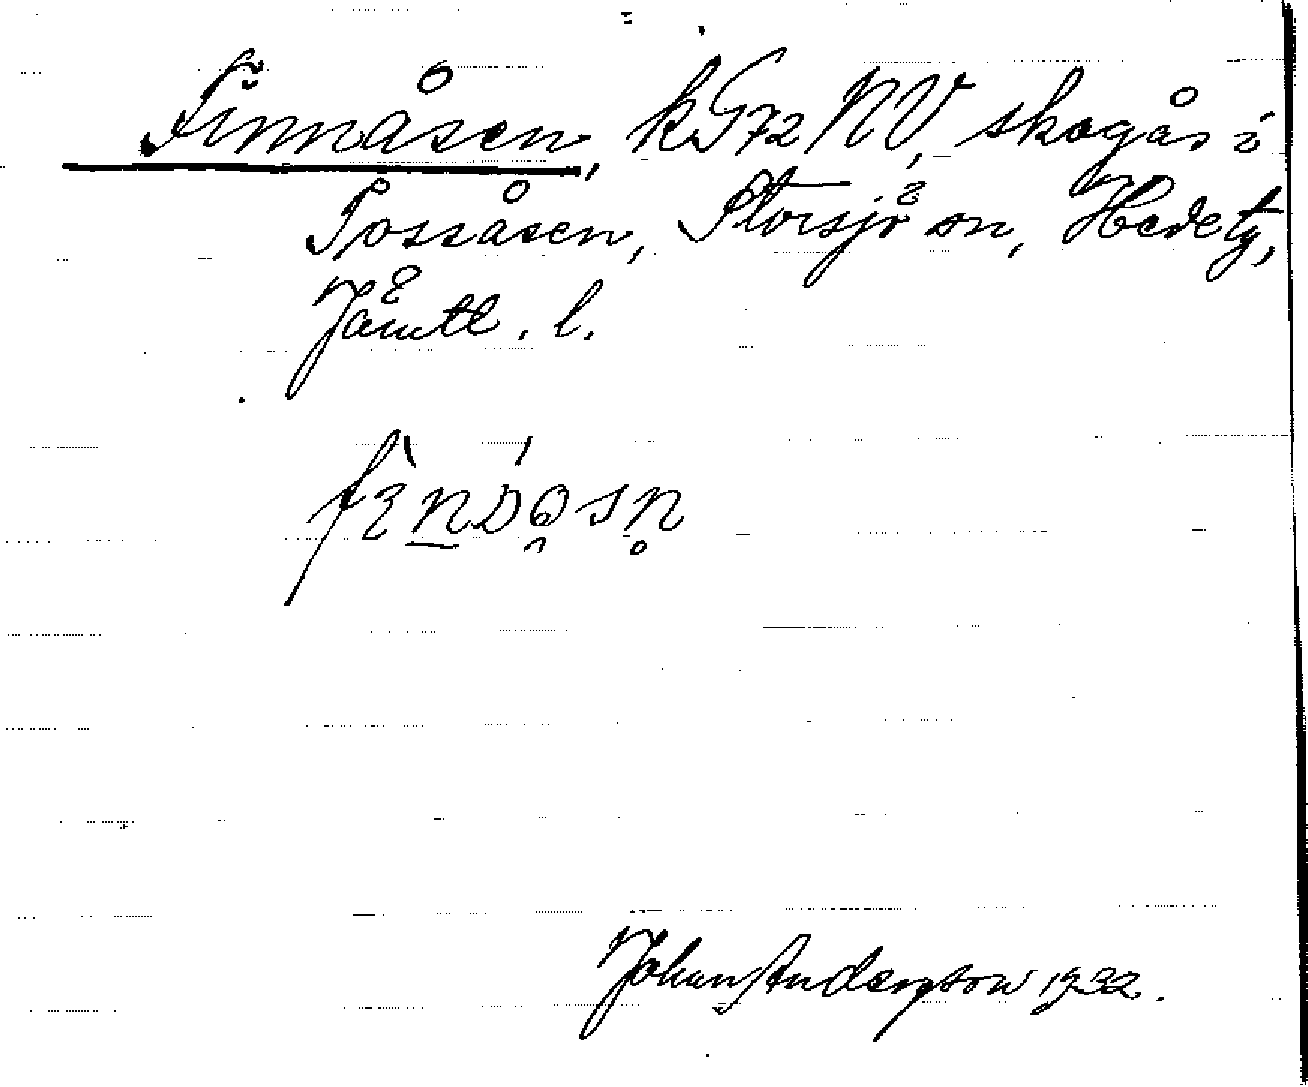 Finnåsen, kG72NV, skogås i
Tossåsen, Storsjö sn, Hede tg,
Jämtl. l.
Johan Anderson 1932.